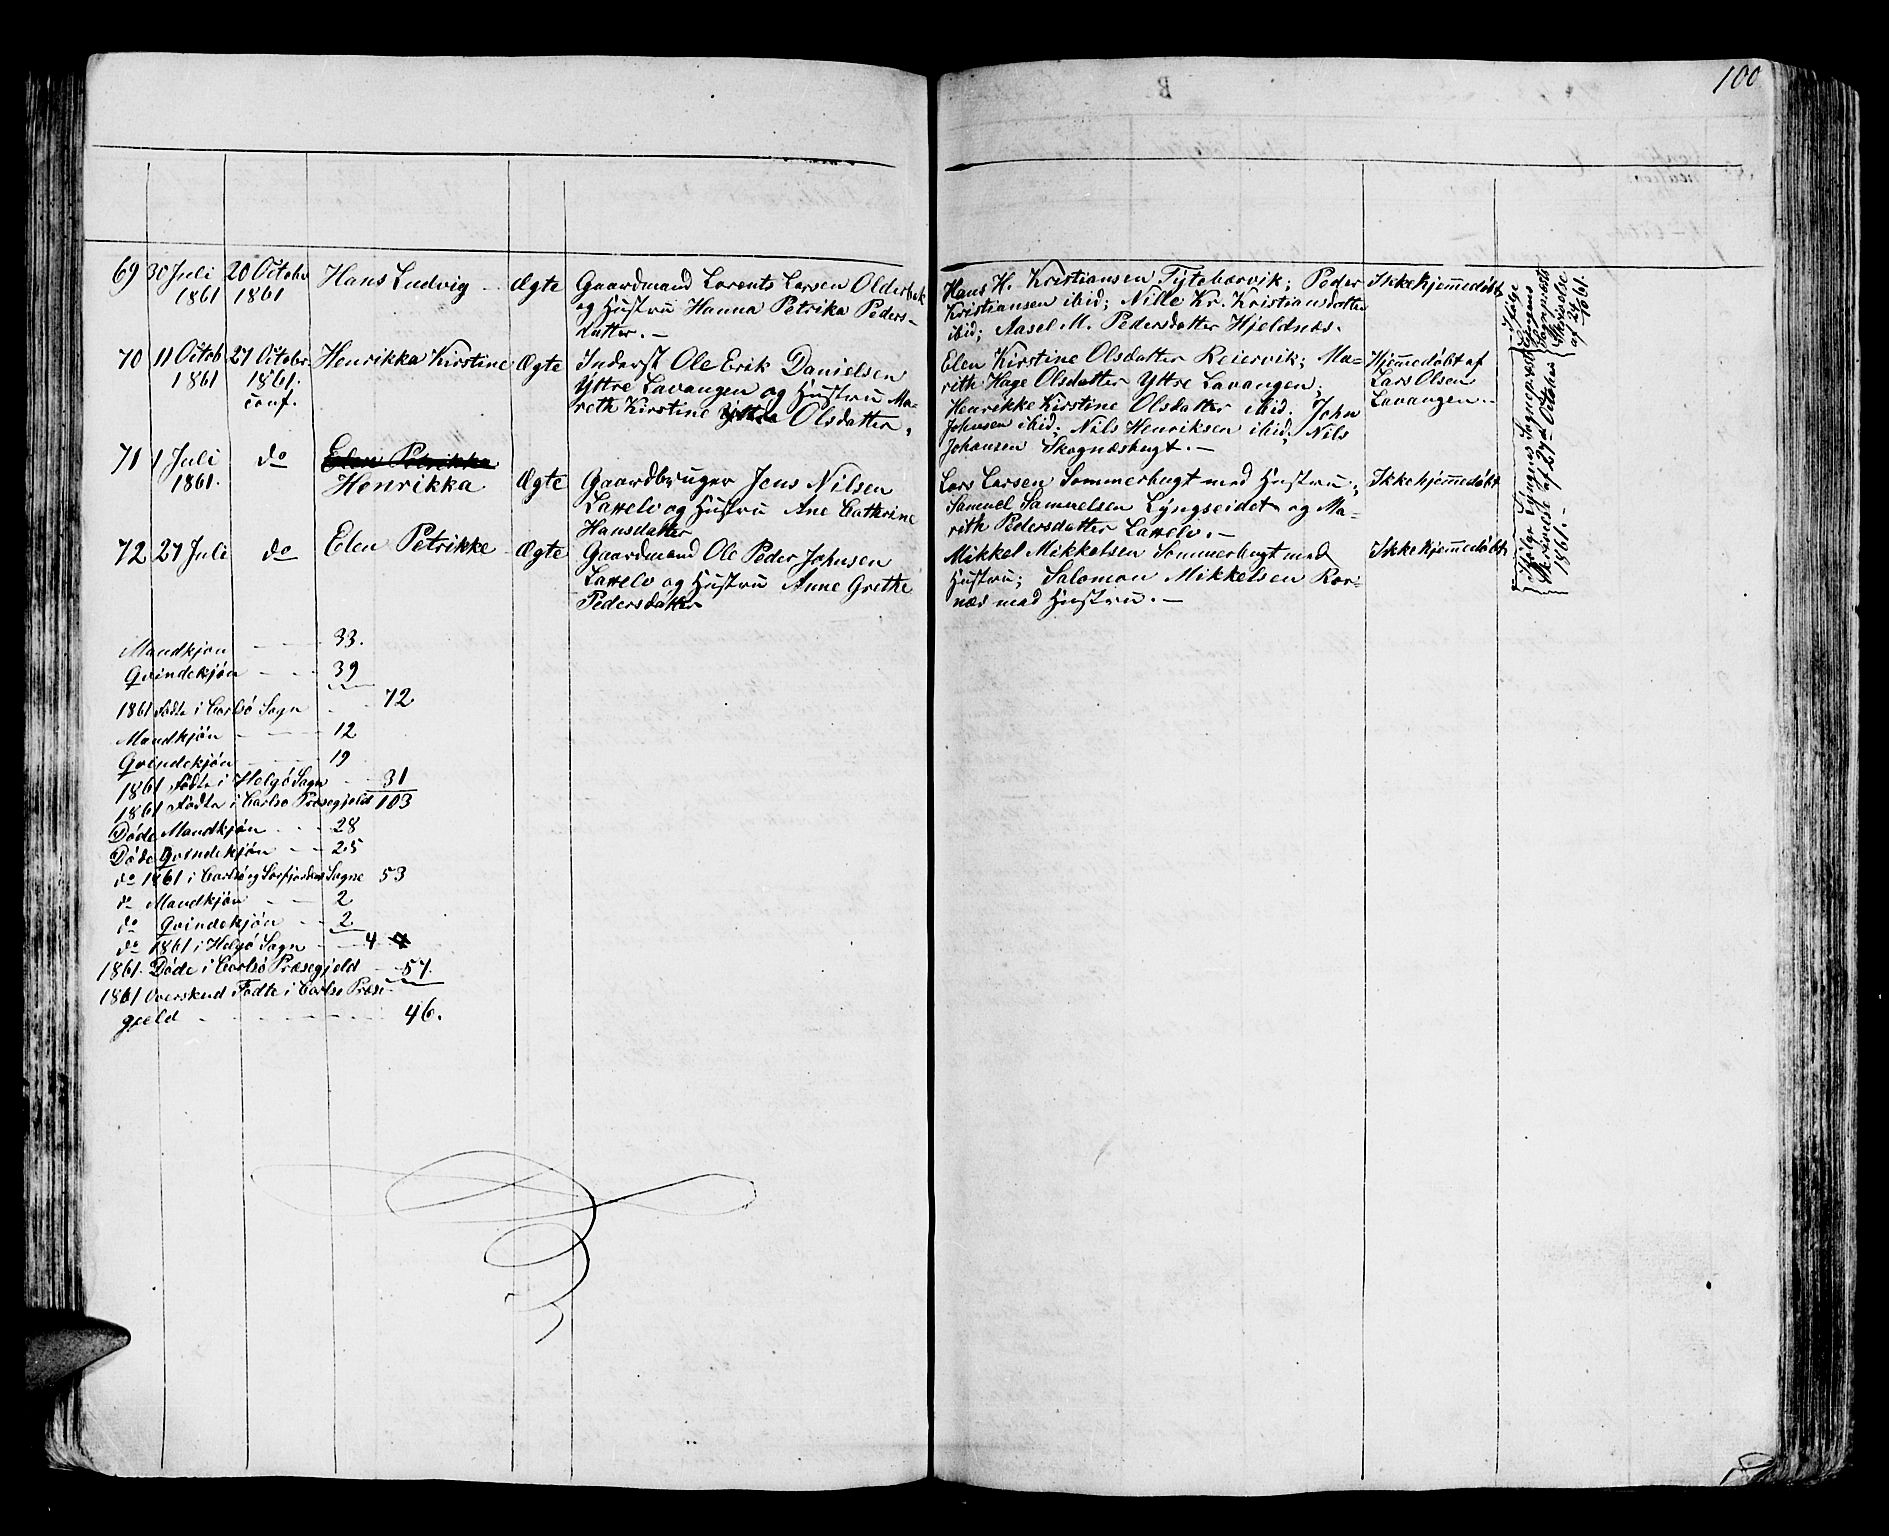 100
69 30 Juli 20 Octobr Hans Ludvig Ægte Gaardmand Lorents Larsen Olderbæk
1861 1861 og Hustru Hanna Petrika Peders-
datter. —
Hans H. Kristiansen Tytebærvik; Peder
Kristiansen ibid; Nille Kr. Kristiansdatter
ibid; Aasel M. Pedersdatter Hjeldnæs.
Ikke hjemmedøbt
70 11 Octob 27 Octobr Henrikka Kirstine Ægte Inderst Ole Erik Danielsen
1861 1861. Yttre Lavangen og Hustru Ma-
conf. reth Kirstine Olsdatter.
Elen Kirstine Olsdatter Reiervik; Ma-
rith Hage Olsdatter Yttre Lavangen;
Henrikke Kirstine Olsdatter ibid. John
Johnsen ibid; Nils Henriksen ibid; Nils
Johansen Skognæsbugt. —
Hjemmedøbt af
Lars Olsen
Lavangen.
71 1 Juli do Elen Petrikka
1861. Henrikka Ægte Gaardbruger Jens Nilsen
Lattelv og Hustru Ane Cathrine
Hansdatter
Lars Larsen Sommerbugt med Hustru;
Samuel Samuelsen Lyngseidet og Ma-
rith Pedersdatter Lattelv. —
Ikke hjemmedøbt
72 27 Juli do Elen Petrikke Ægte Gaardmand Ole Peder Johnsen
Lattelv og Hustru Anne Grethe
Pedersdatter
Mikkel Mikkelsen Sommerbugt med
Hustru; Salomon Mikkelsen Kor-
næs med Hustru. —
Ikke hjemmedøbt
Ifølge
Lyngens
Sogneprests
Skrivelse
af 24
1861.
Ifølge Lyngens Sogneprests
Skrivelse af 27de October
1861. —
Mandkjøn 33.
Qvindekjøn 39
1861 fødte i Carlsø Sogn 72
Mandkjøn 12
Qvindekjøn 19
1861 fødte i Helgø Sogn 31
1861 fødte i Carlsø Præsegjeld 103
Døde Mandkjøn 28
Døde Qvindekjøn 25
do 1861 i Carlsø og Sørfjordens Sogne 53
do Mandkjøn 2
do Qvindekjøn 2
do 1861 i Helgø Sogn 4
1861. Døde i Carlsø Præsegjeld 57.
1861 Overskud Fødte i Carlsø Præse-
gjeld 46.